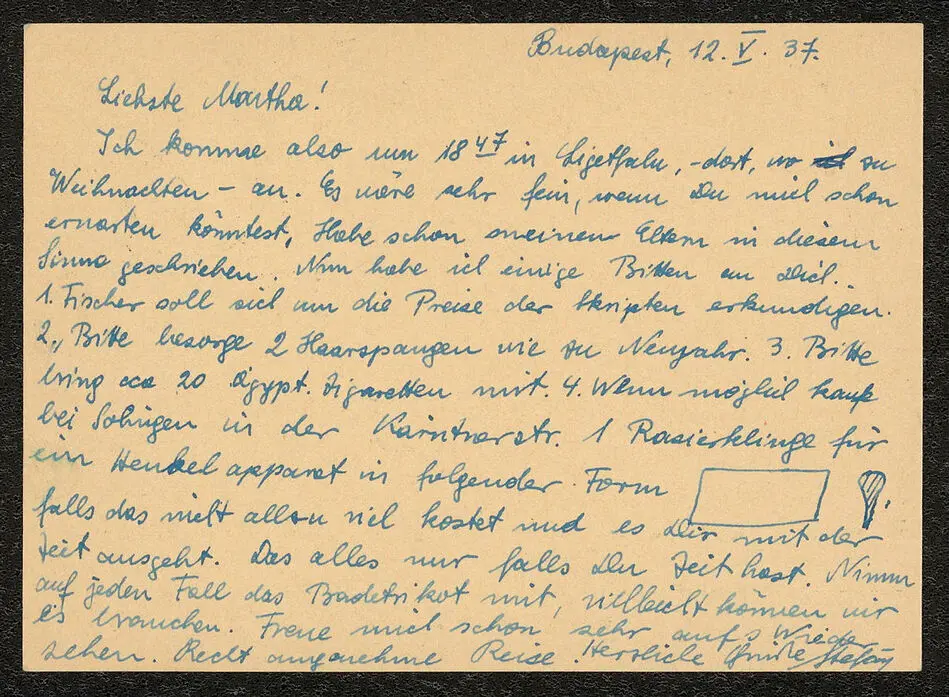 Budapest, 12. V. 37.
Liebste Martha!
Ich komme also um 18 47 in Ligetfalu, - dort, wo zu
Weihnachten - an. Es wäre sehr fein, wenn Du mich schon
erwarten könntest, Habe schon meinen Eltern in diesem
Sinne geschrieben. Nun habe ich einige Bitten an Dich.
1. Fischer soll sich um die Preise der Skripten erkundigen.
2., Bitte besorge 2 Haarspangen wie zu Neujahr. 3. Bitte
bring cca 20 ägypt. Zigaretten mit. 4. Wenn möglich kauf
bei Solingen in der Kärntnerstr. 1 Rasierklinge für
ein Henkel apparat in folgender Form
falls das nicht allzu viel kostet und es Dir mit der
Zeit ausgeht. Das alles nur falls Du Zeit hast. Nimm
auf jeden Fall das Badetrikot mit, vielleicht können wir
es brauchen. Freue mich schon sehr aufs Wieder
sehen. Recht angenehme Reise. Herzliche Grüße Stefan